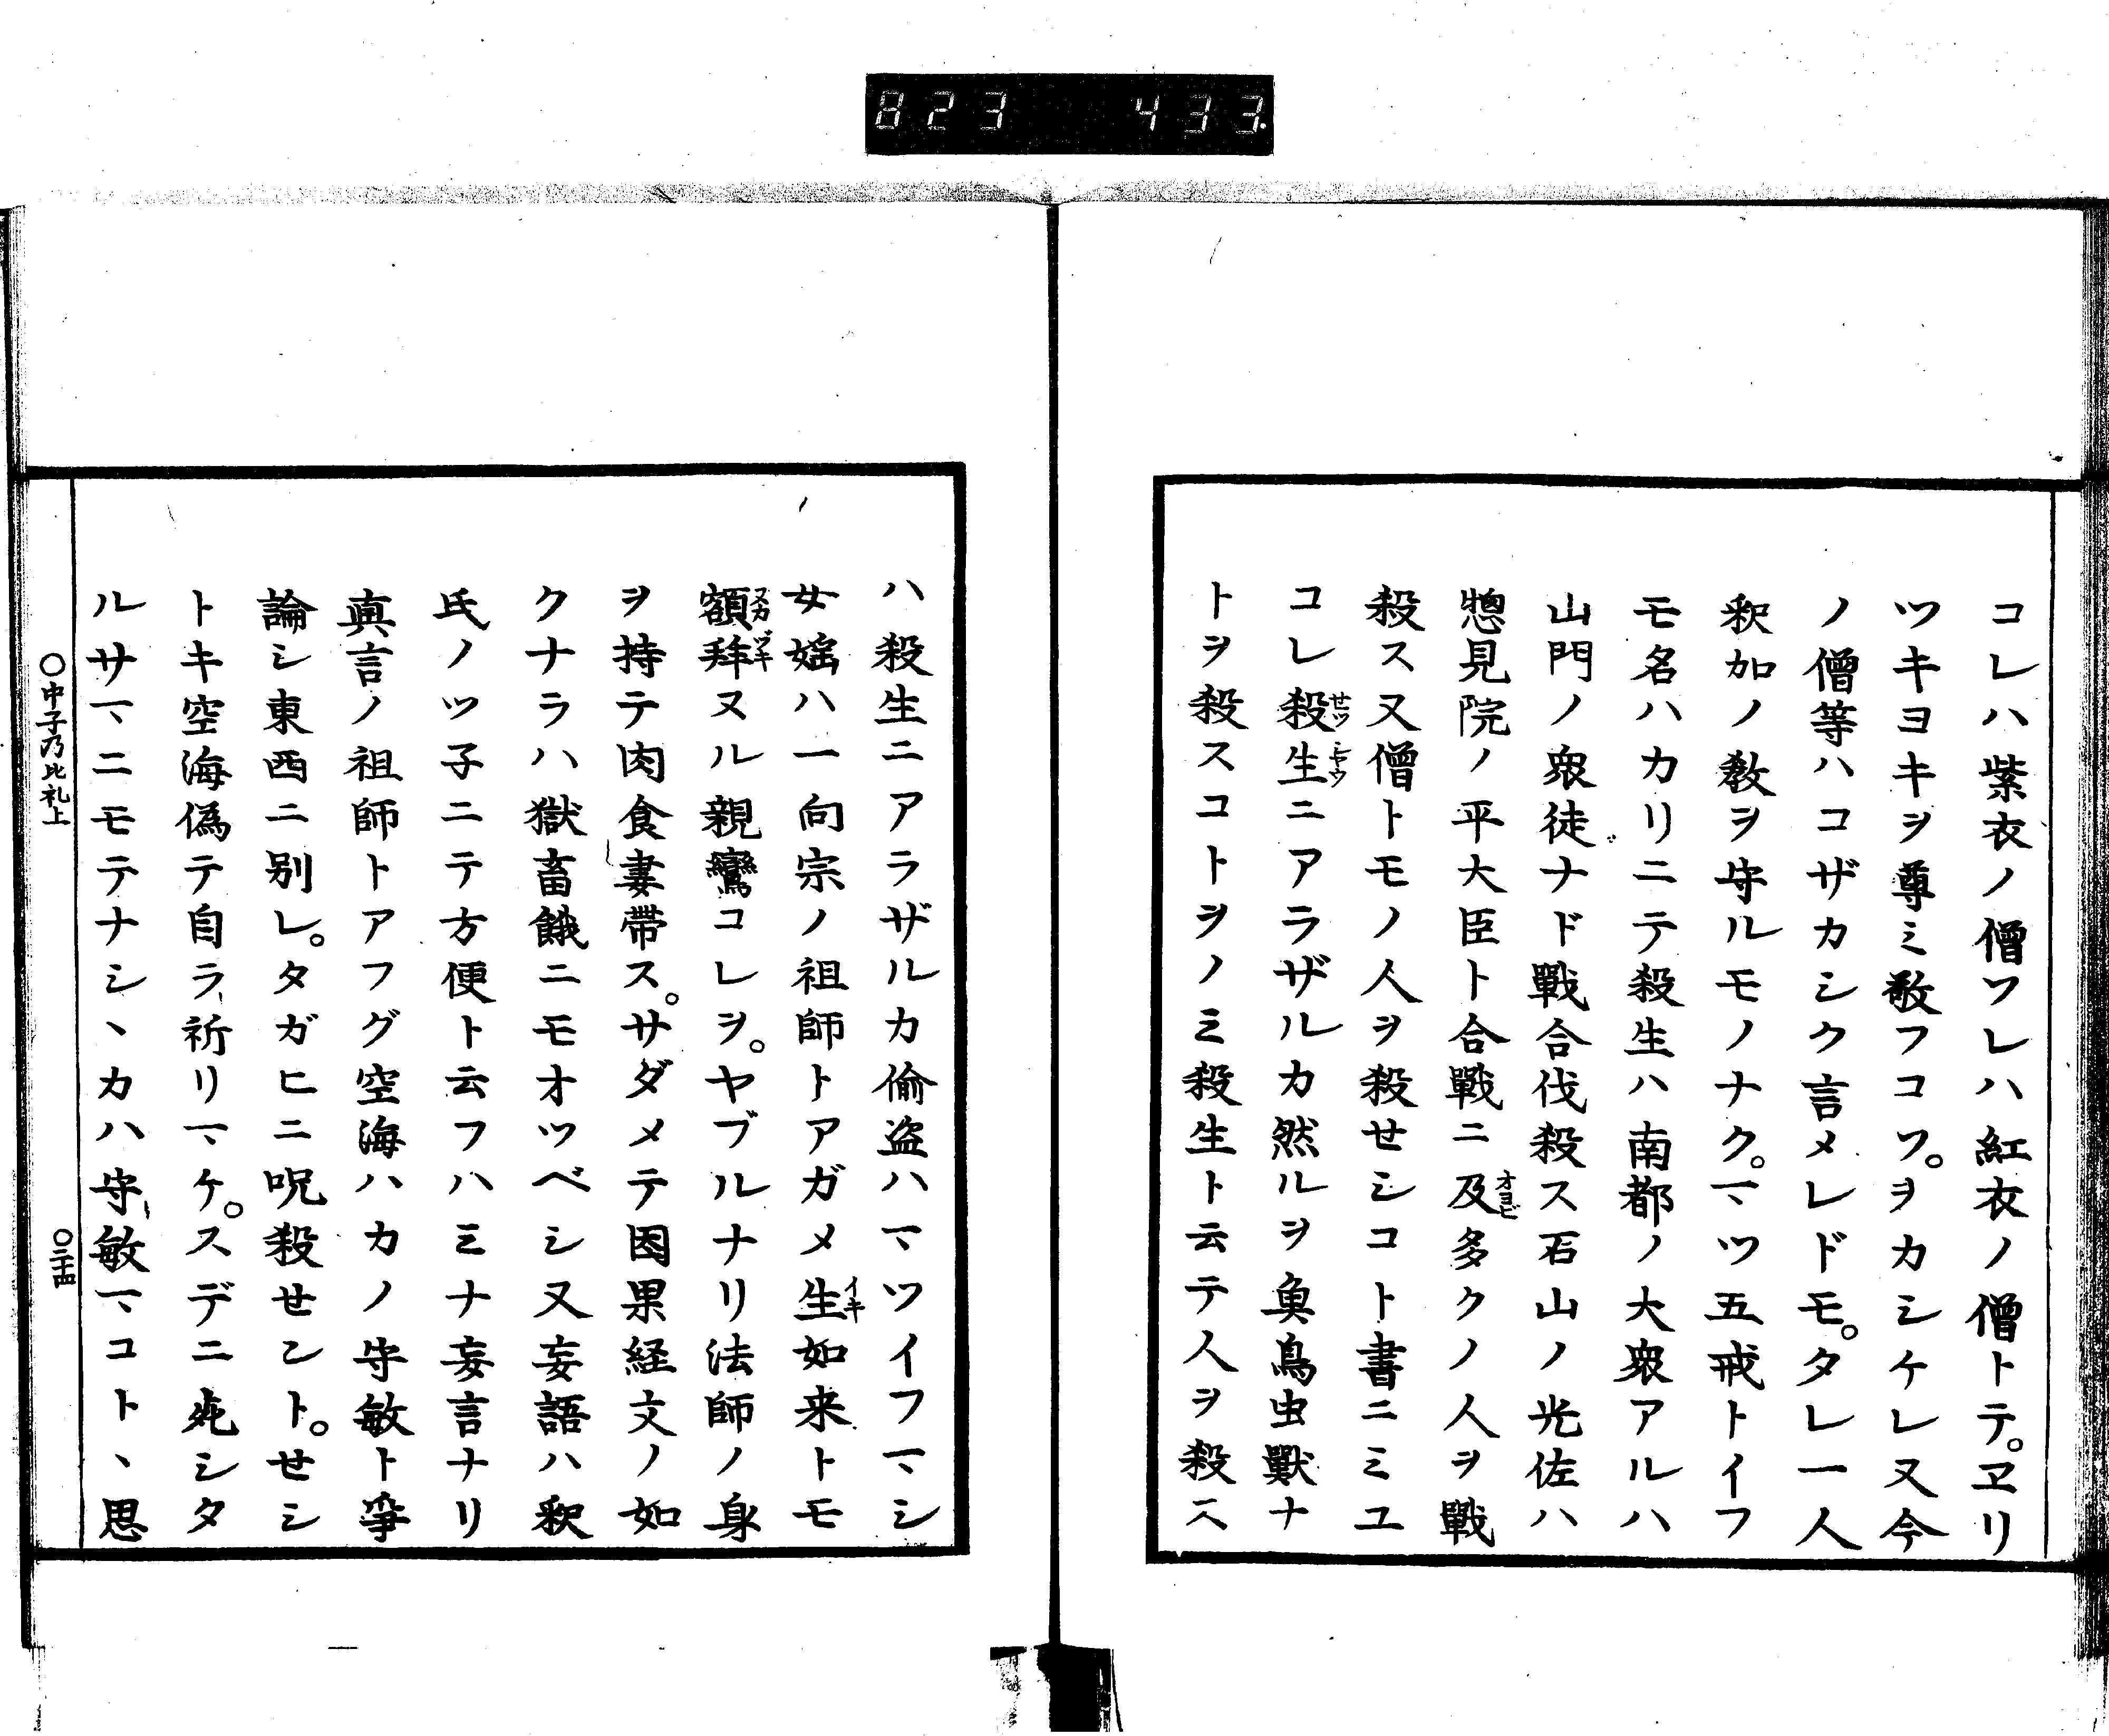 823 433.
コレハ紫衣ノ僧ソレハ紅衣ノ僧トテ。ヱリ
ツキヨキヲ尊ミ敬フコソ。ヲカシケレ又今
ノ僧等ハコザカシク言メレドモ。タレ一人
釈加ノ教ヲ守ルモノナク。マヅ五戒トイフ
モ名ハカリニテ殺生ハ南都ノ大衆アルハ
山門ノ衆徒ナド戰合伐殺ス石山ノ光佐ハ
惣見院ノ平大臣ト合戰ニ及オヨビ多クノ人ヲ戰
殺ス又僧トモノ人ヲ殺セシコト書ニミユ
コレ殺生セツシヤウニアラザルカ然ルヲ魚鳥虫獸ナ
トヲ殺スコトヲノミ殺生ト云テ人ヲ殺ス
ハ殺生ニアラザルカ偷盗ハマヅイフマシ
女婬ハ一向宗ノ祖師トアガメ生イキ如来トモ
額拜ヌカヅキヌル親鸞コレヲ。ヤブルナリ法師ノ身
ヲ持テ肉食妻帶ス。サダメテ因果経文ノ如
クナラハ獄畜餓ニモオツベシ又妄語ハ釈
氏ノツ子ニテ方便ト云フハミナ妄言ナリ
眞言ノ祖師トアフグ空海ハカノ守敏ト爭
論シ東西ニ別レ。タガヒニ呪殺セント。せシ
トキ空海偽テ自ラ祈リマケ。スデニ死シタ
ルサマニモテナシヽカハ守敏マコトヽ思
〇中子乃比礼上 〇二十四